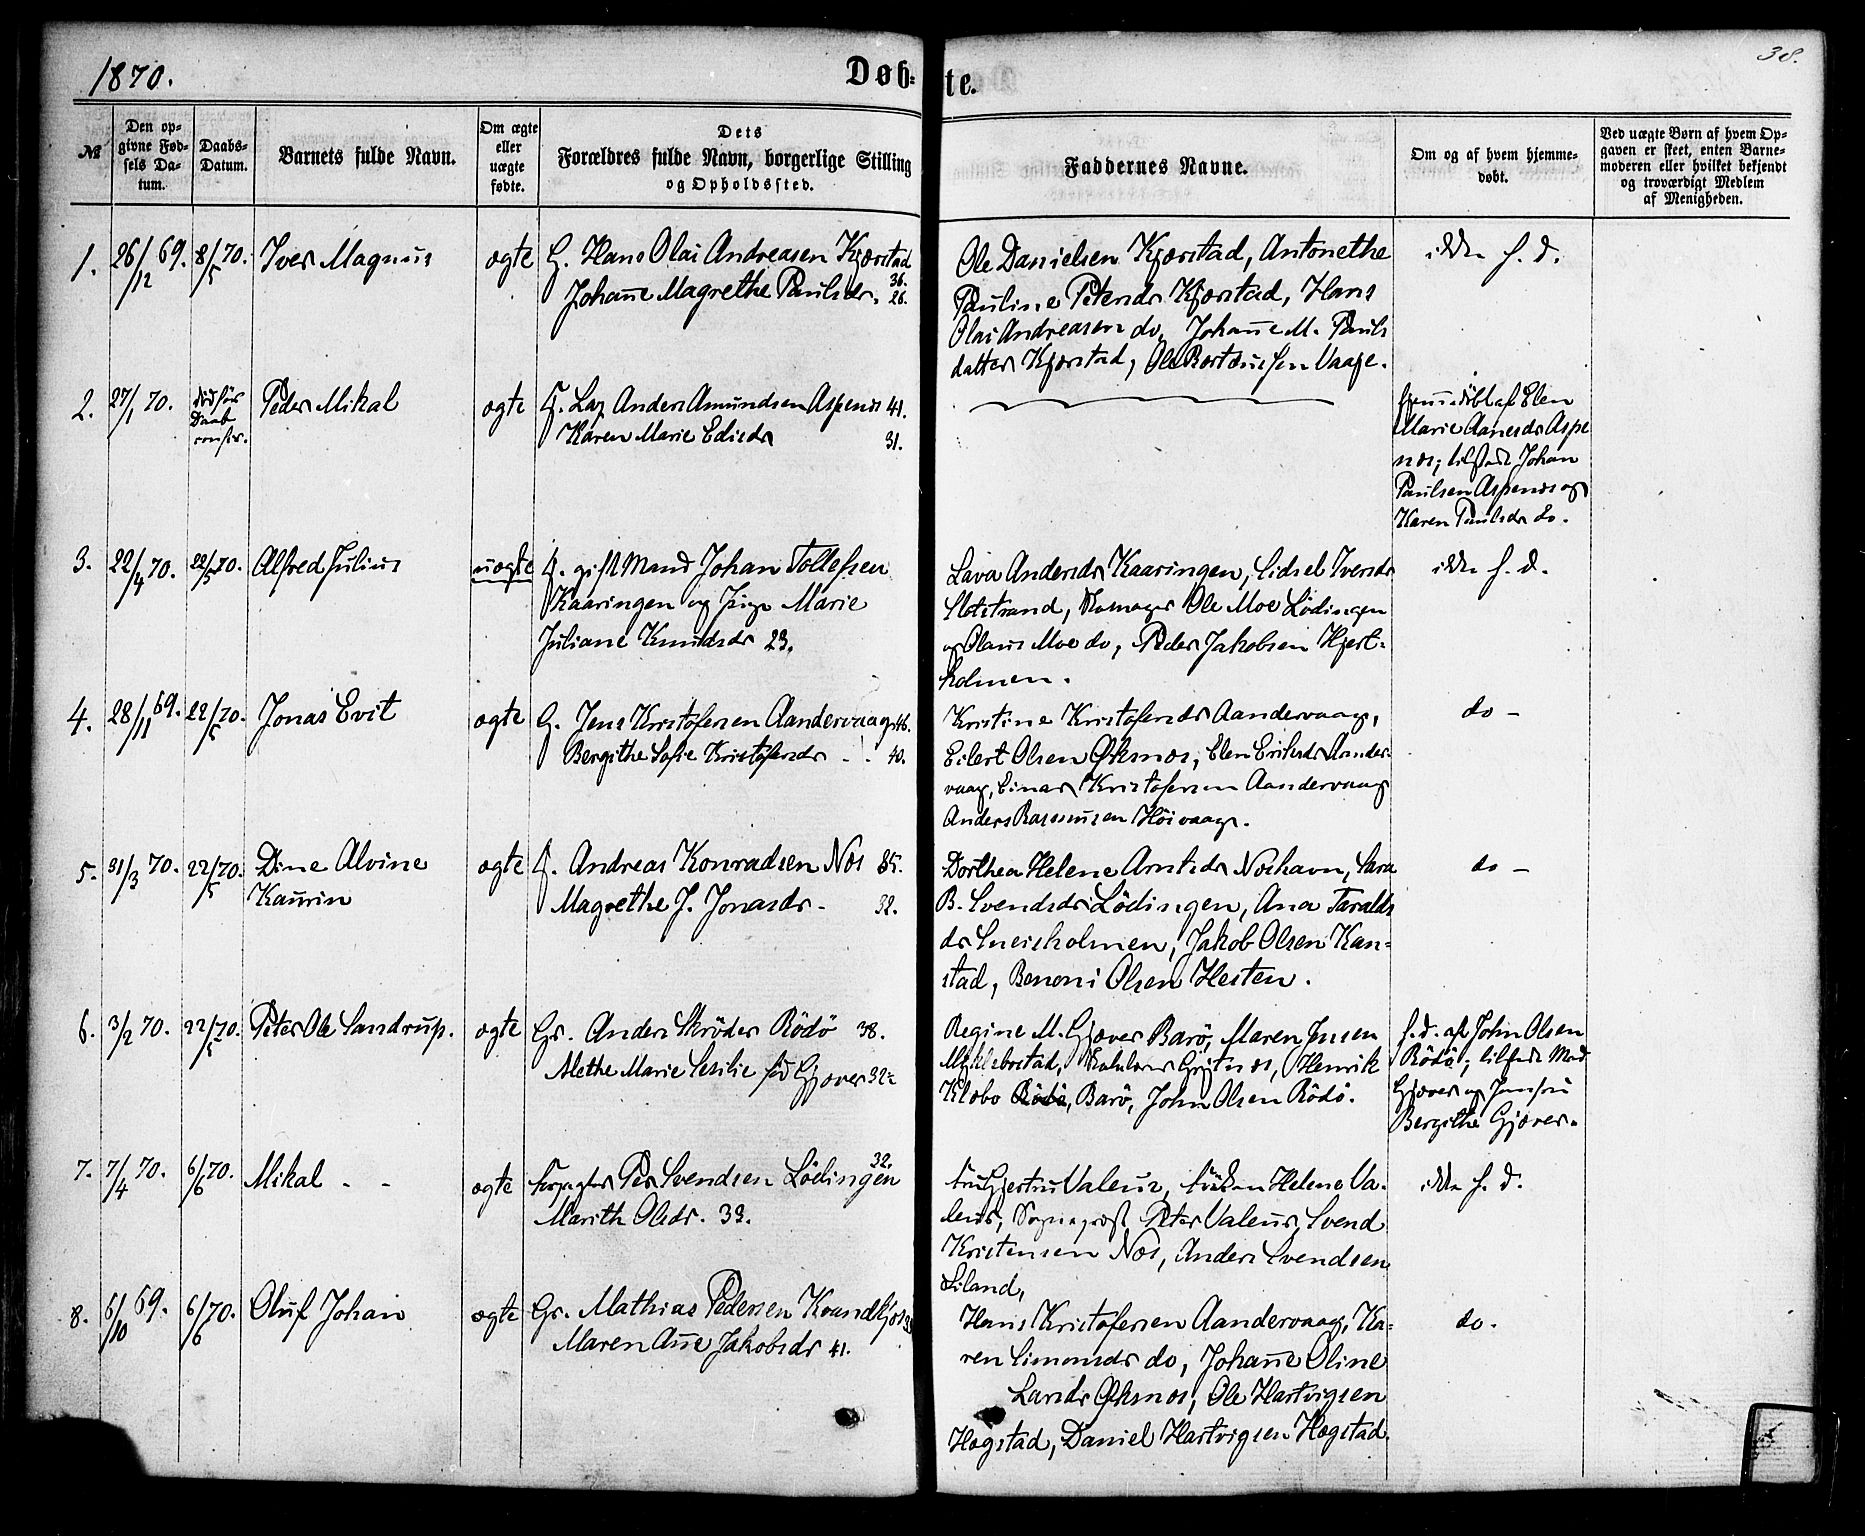 1870.
Døb-
te.
38.
№
Den op-
givne Fød-
sels Da-
tum.
Daabs-
Datum.
Barnets fulde Navn.
Om ægte
eller
uægte
fødte.
Dets
Forældres fulde Navn, borgerlige Stilling
og Opholdssted.
Faddernes Navne.
Om og af hvem hjemme-
døbt.
Ved uægte Børn af hvem Op-
gaven er skeet, enten Barne-
moderen eller hvilket bekjendt
og troværdigt Medlem
af Menigheden.
1.
26/12 69.
8/5 70.
Iver Magnus
ægte
G. Hans Olai Andreasen Kjærstad
36.
Johan̄e Magrethe Paulsdr.
26.
Ole Danielsen Kjærstad, Antonethe
Pauline Petersdr Kjærstad, Hans
Olai Andreasen do, Johan̄e M. Pauls
datter Kjærstad, Ole Berteussen Vaaje.
ikke h. d.
2.
27/1 70.
død før
Daab
Peder Mikal
ægte
Anders Amundsen Aspenæs 41.
Karen Marie Edisdr
31.
hjem̄edøbt af Elen
Marie Aanesdr Aspe
næs; tilstede Johan
Paulsen Aspenæs og
Karen Paulsdr do.
3.
22/4 70.
22/5 70.
Alfred Julius
uægte
F. gift Mand Johan Tollefsen
Kaaringen og Pige Marie
Juliane Knudsdr 23.
Lava Andersdr Kaaringen, Sidsel Iversdr
Slotstrand, Ole Moe Lødingen
og Olaus Moe do, Peder Jakobsen Hjert-
holmen.
ikke h. d.
4.
28/11 69.
22/5 70.
Jonas Evit
ægte
G. Jens Kristofersen Aandervaag 46.
Bergithe Sofie Kristofersdr
40.
Kristine Kristofersdr Aandervaag,
Eilert Olsen Øksnæs, Elen Eriksdr Aander-
vaag, Einar Kristofersen Aandervaag
Anders Rasmussen Høivaag.
do -
5.
31/3 70.
22/5 70.
Dine Alvine
Kaurin
ægte
F. Andreas Konradsen Næs 35.
Magrethe J. Jonasdr -
32.
Dorthea Helene Arntsdr Næshavn, Sara
B. Svendsdr Lødingen, Ana Taralds
dr Sneisholmen, Jakob Olsen Kan-
stad, Benoni Olsen Hesten.
do -
6.
3/2 70.
22/5 70.
Peter Ole Sandrup.
ægte
Gr. Anders Skrøder Rødø 38.
Methe Marie Cesilie fød Gjæver 32
Regine M. Gjæver Barø, Maren Jensen
Myklebostad, Henrik
Klæbo Rødø, Barø, John Olsen Rødø.
h. d. af John Olsen
Rødø; tilstede Mad
Gjæver og Jomfru
Bergithe Gjæver.
7.
7/4 70.
6/6 70.
Mikal - -
ægte
Forpagter Per Svendsen Lødingen
32.
Marith Olsdr. 33.
Fru Gjertru Valeur, Frøken Helene Va-
leur, Sogneprest Peter Valeur, Svend
Kristensen Næs, Anders Svendsen
Liland,
ikke h. d.
8.
6/10 69.
6/6 70.
Oluf Johan
ægte
Gr. Mathias Pedersen Kvandkjos
Maren An̄e Jakobsdr 41.
Hans Kristofersen Aandervaag, Ka-
ren Simonsdr do, Johan̄e Oline
Larsdr Øksnæs, Ole Hartvigsen
Hægstad, Daniel Hartvigsen Hægstad.
do.